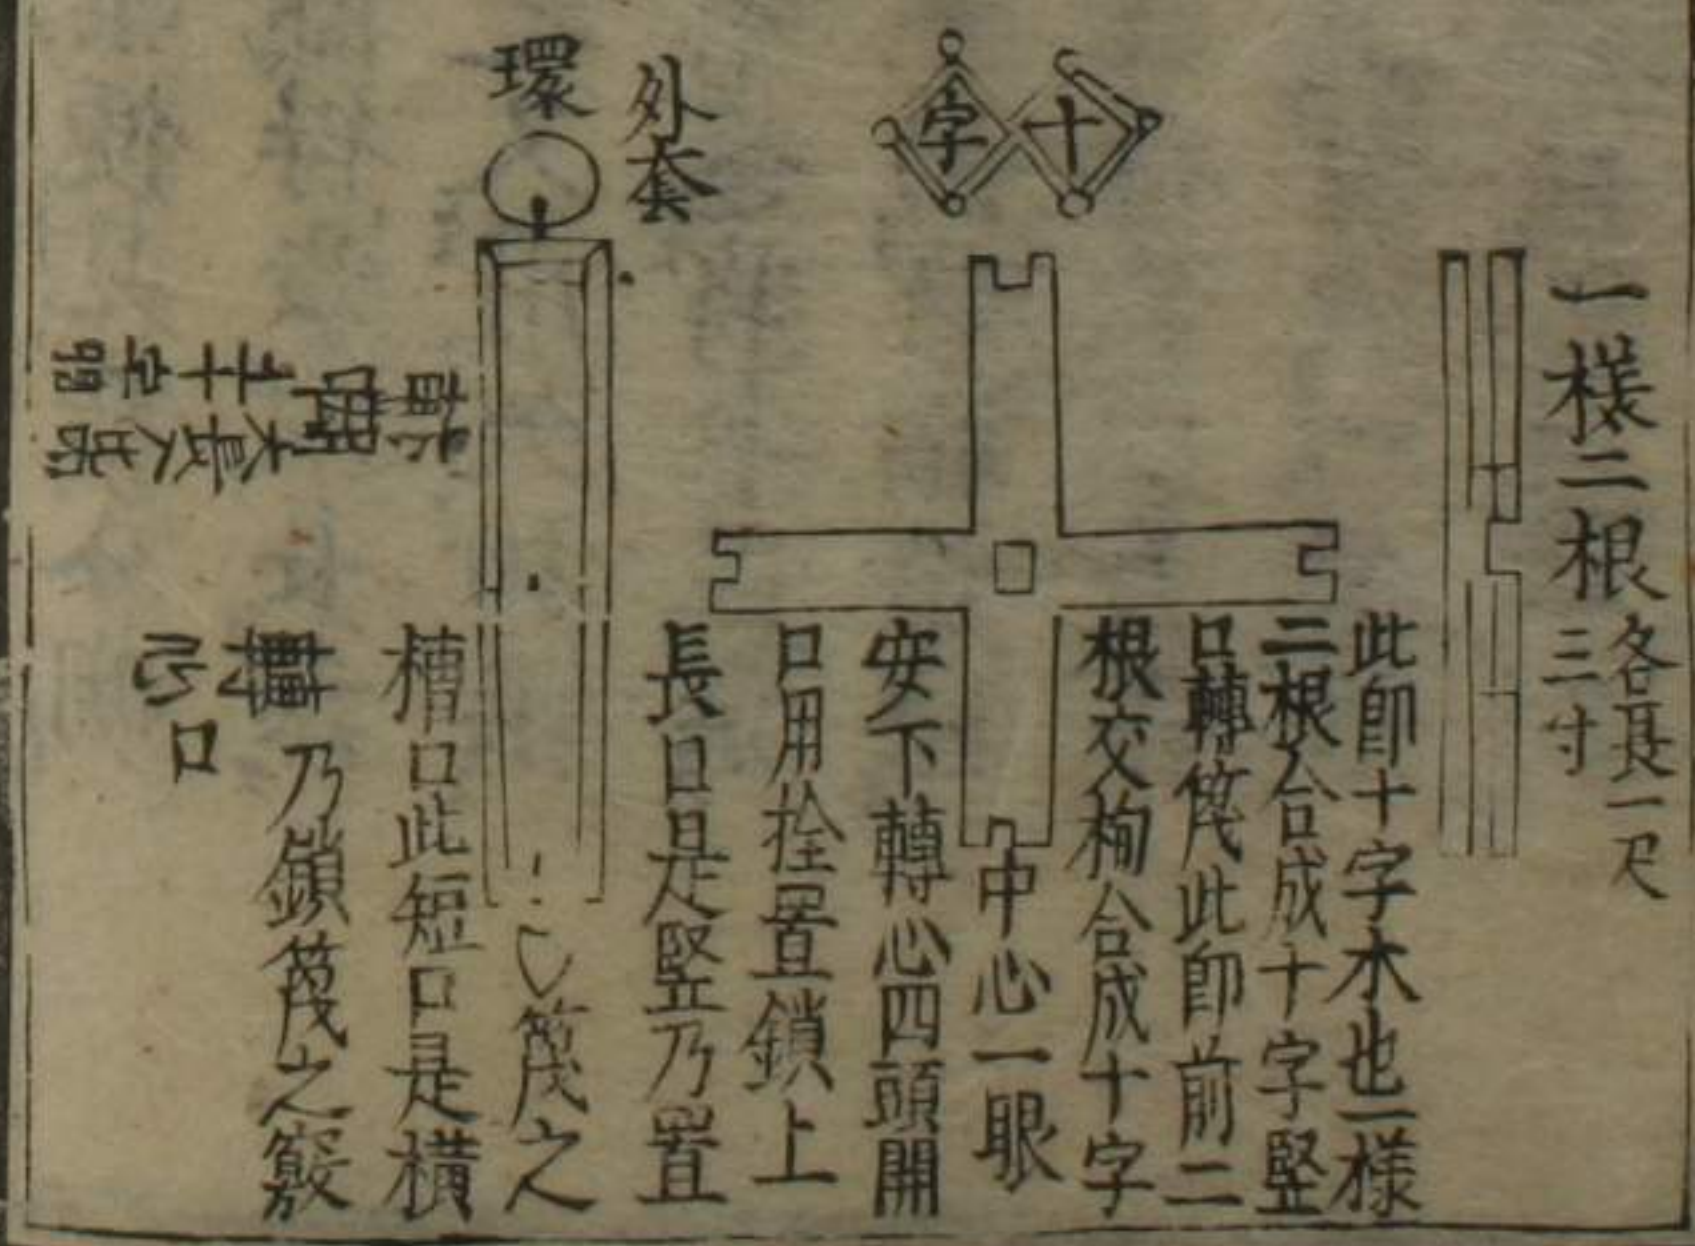 一樣二根
各長一尺
三寸
十
字
外套
環
此即十字木也一樣
二根合成十字竪
口轉筏此即前二
根交枸合成十字
中心一眼
安下轉心四頭開
口用拴置鎖上
長口是竪乃置
筏之
槽口此短口是橫
轉
乃鎖筏之籔
心口